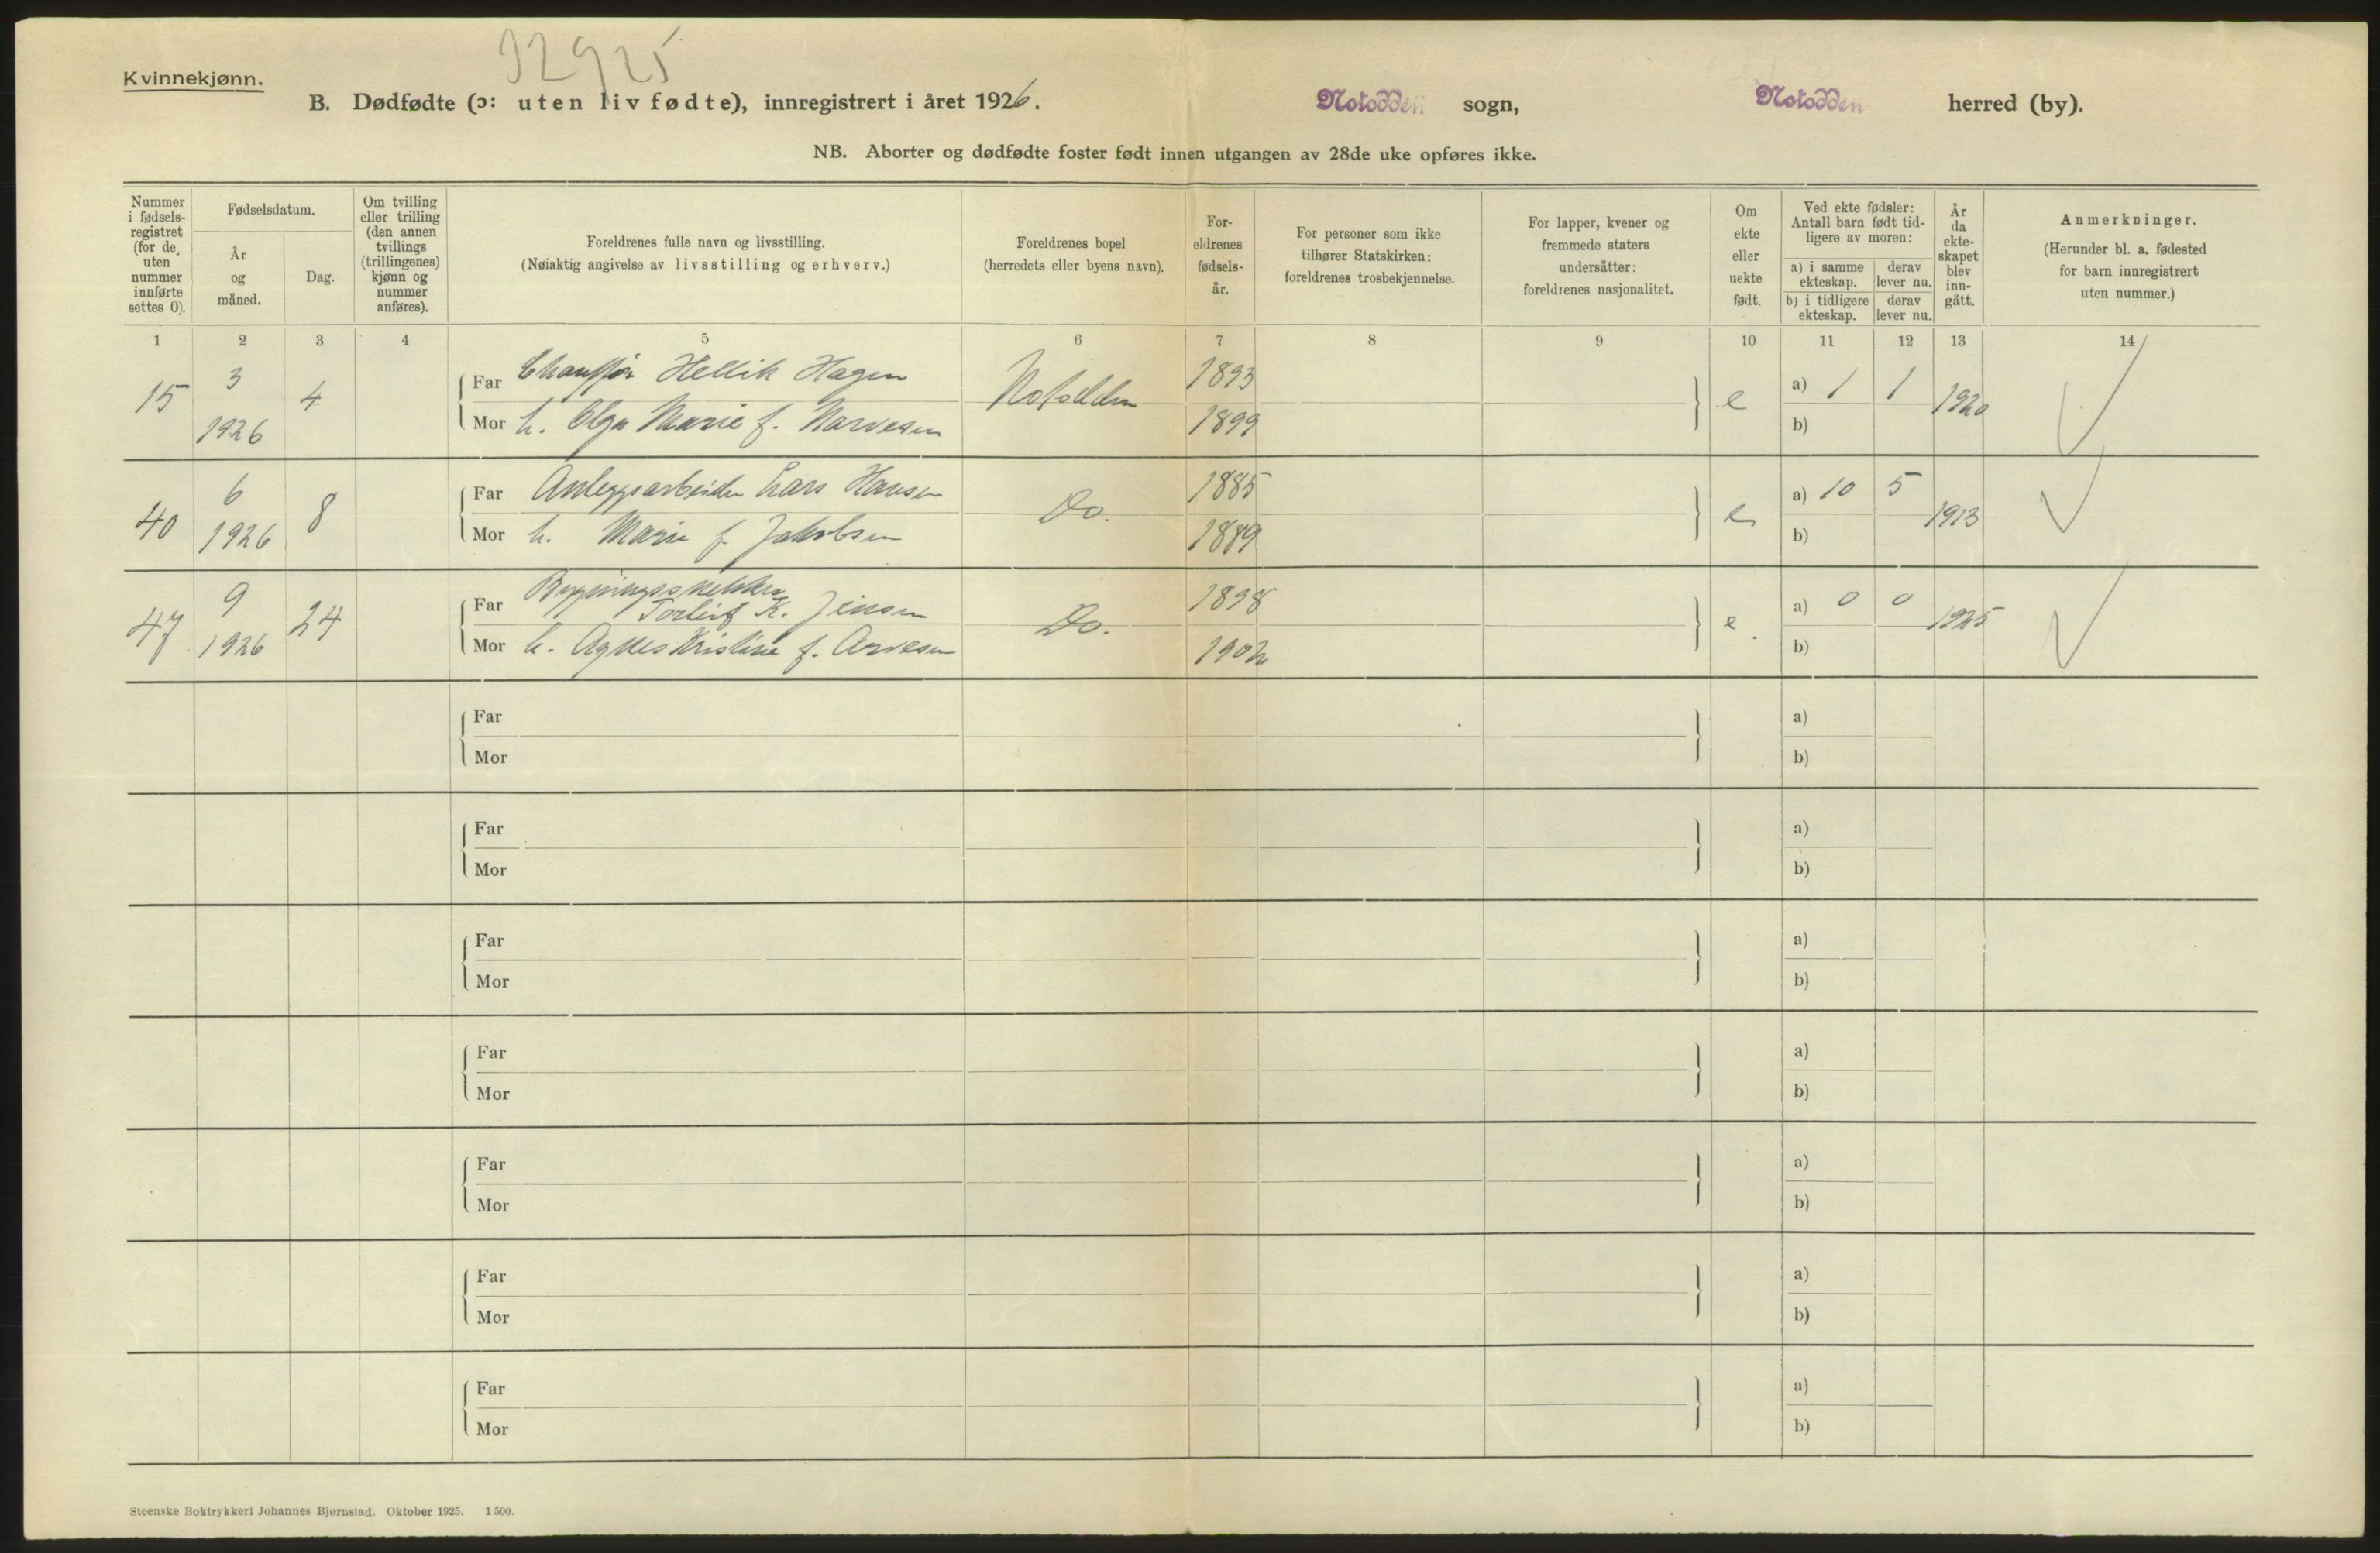 32925
Kvinnekjønn.
B. Dødfødte (ɔ: uten liv fødte), innregistrert i året 1926. Notodden sogn, Notodden herred (by).
NB. Aborter og dødfødte foster født innen utgangen av 28de uke opføres ikke.
Nummer i fødsels-registret (for de uten nummer innførte settes 0).
Fødselsdatum.
År og måned.
Dag.
Om tvilling eller trilling (den annen tvillings (trillingenes) kjønn og nummer anføres).
Foreldrenes fulle navn og livsstilling.
(Nøiaktig angivelse av livsstilling og erhverv.)
Foreldrenes bopel
(herredets eller byens navn).
For-eldrenes fødsels-år.
For personer som ikke tilhører Statskirken: foreldrenes trosbekjennelse.
For lapper, kvener og fremmede staters undersåtter: foreldrenes nasjonalitet.
Om ekte eller uekte født.
Ved ekte fødsler: Antall barn født tid-ligere av moren:
a) i samme ekteskap. derav lever nu.
b) i tidligere ekteskap. derav lever nu.
År da ekte-skapet blev inn-gått.
Anmerkninger.
(Herunder bl. a. fødested for barn innregistrert uten nummer.)
1 2 3 4 5 6 7 8 9 10 11 12 13 14
15 3 1926 4 Far Chauffør Hellik Hagen Notodden 1893 e a) 1 1 1920
Mor h. Olga Marie f. Narvesen 1899 b)
40 6 1926 8 Far Anleggsarbeider Lars Hansen Do. 1885 e a) 10 5 1913
Mor h. Marie f. Jakobsen 1889 b)
47 9 1926 24 Far Bygningssnekker
Torleif K. Jensen Do. 1898 e. a) 0 0 1925
Mor h. Agnes Kristine f. Arvesen 1902 b)
Far a)
Mor b)
Far a)
Mor b)
Far a)
Mor b)
Far a)
Mor b)
Far a)
Mor b)
Far a)
Mor b)
Far a)
Mor b)
Steenske Boktrykkeri Johannes Bjørnstad. Oktober 1925. 1500.